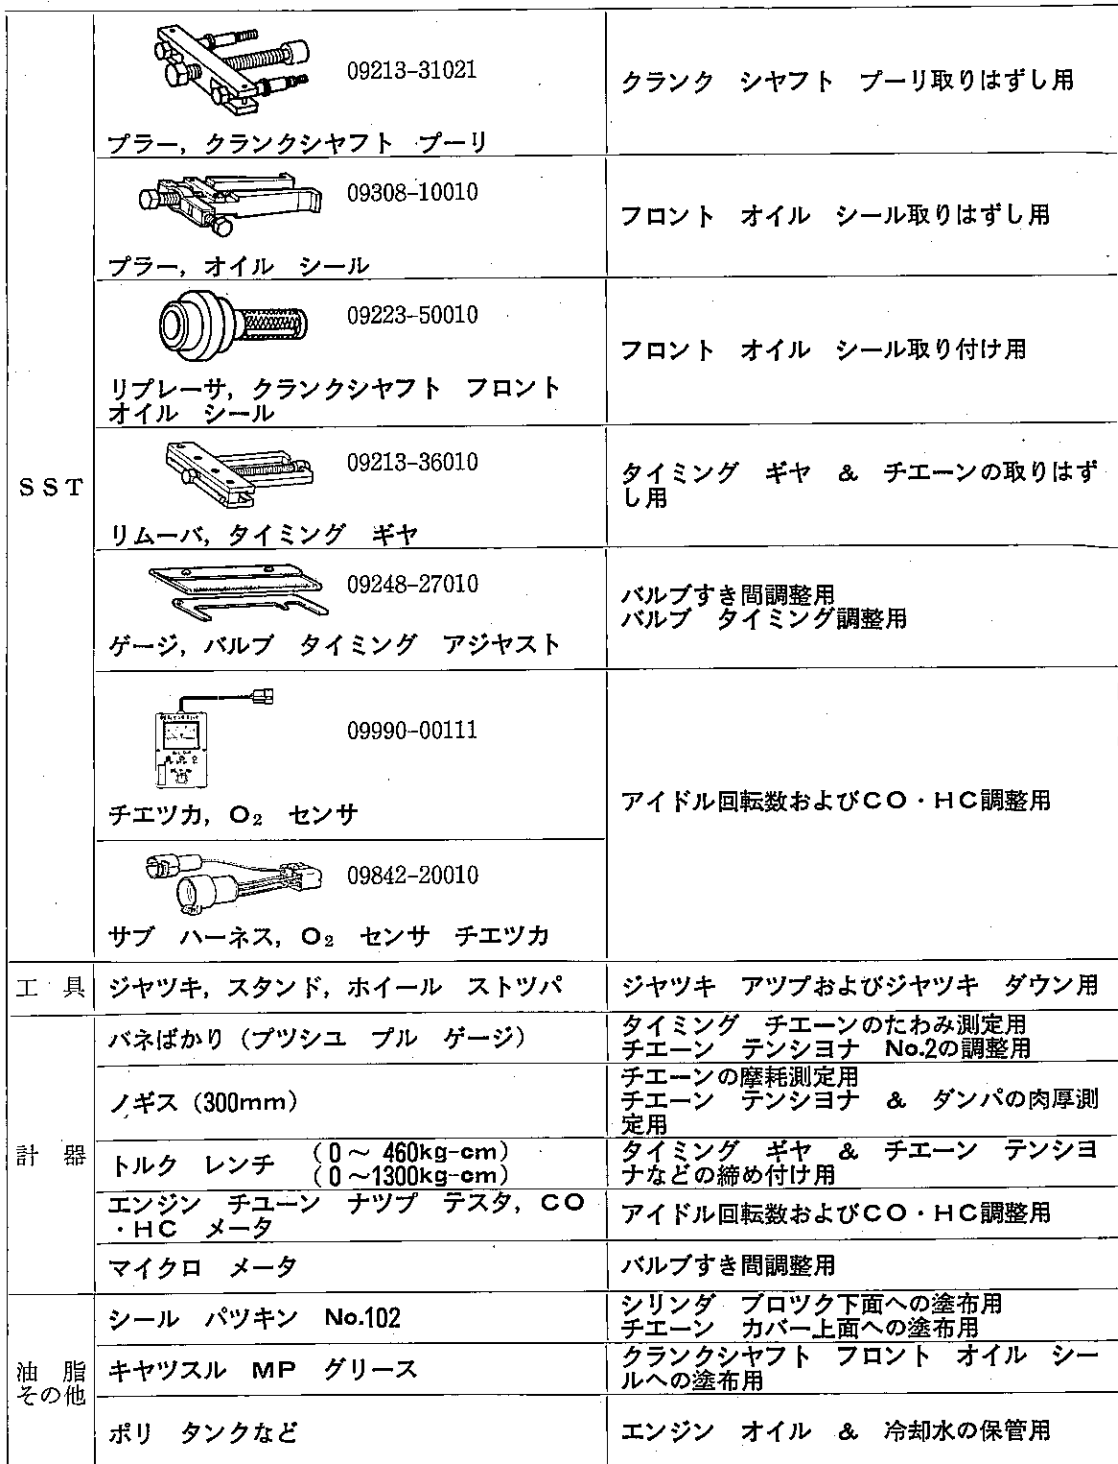 SST
09213-31021
プラー, クランクシヤフト プーリ
クランク シヤフト プーリ取りはずし用
09308-10010
プラー, オイル シール
フロント オイル シール取りはずし用
09223-50010
リプレーサ, クランクシヤフト フロント
オイル シール
フロント オイル シール取り付け用
09213-36010
リムーバ, タイミング ギヤ
タイミング ギヤ & チエーンの取りはず
し用
09248-27010
ゲージ, バルブ タイミング アジヤスト
バルブすき間調整用
バルブ タイミング調整用
09990-00111
チエツカ, O₂ センサ
アイドル回転数およびCO・HC調整用
09842-20010
サブ ハーネス, O₂ センサ チエツカ
工 具
ジヤツキ, スタンド, ホイール ストツパ
ジヤツキ アツプおよびジヤツキ ダウン用
計 器
バネばかり (プツシユ プル ゲージ)
タイミング チエーンのたわみ測定用
チエーン テンシヨナ No.2の調整用
ノギス (300mm)
チエーンの摩耗測定用
チエーン テンシヨナ & ダンパの肉厚測
定用
トルク レンチ (0～ 460kg-cm)
(0～1300kg-cm)
タイミング ギヤ & チエーン テンシヨ
ナなどの締め付け用
エンジン チユーン ナツプ テスタ, CO
・HC メータ
アイドル回転数およびCO・HC調整用
マイクロ メータ
バルブすき間調整用
油 脂
その他
シール パツキン No.102
シリンダ ブロツク下面への塗布用
チエーン カバー上面への塗布用
キヤツスル MP グリース
クランクシヤフト フロント オイル シー
ルへの塗布用
ポリ タンクなど
エンジン オイル & 冷却水の保管用